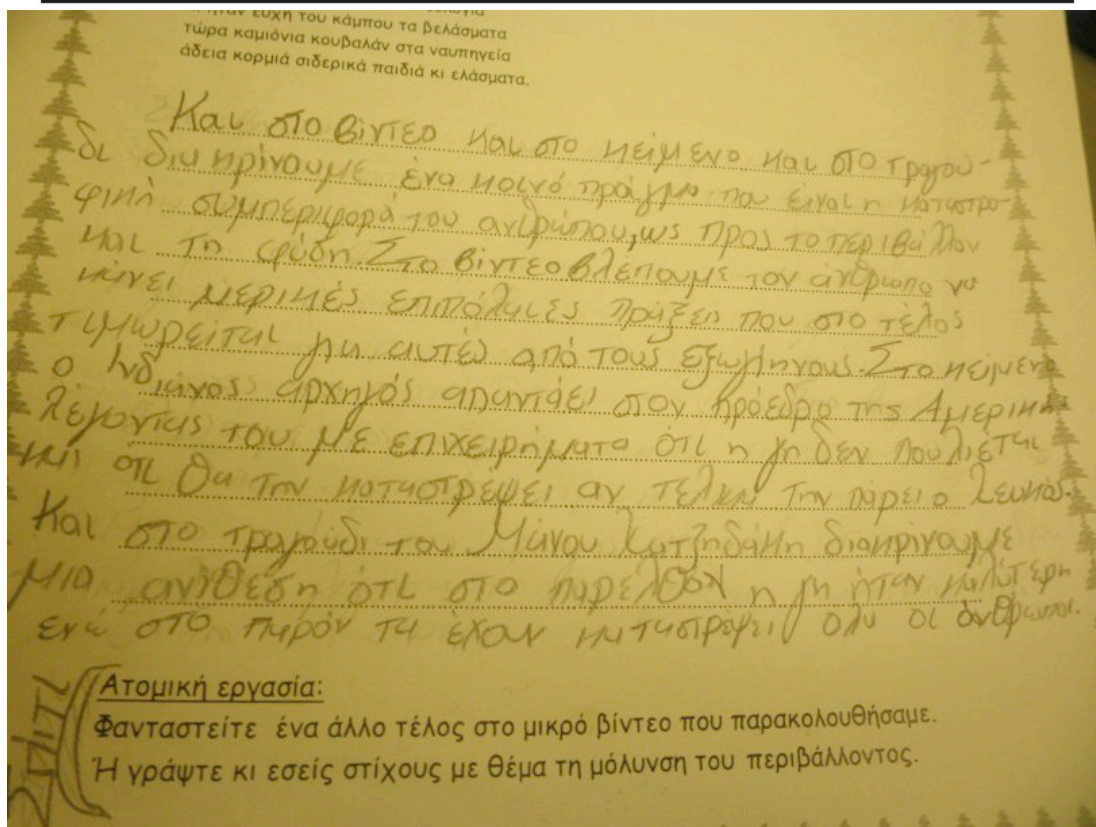 κι ήταν ευχή του κάμπου τα βελάσματα
τώρα καμιόνια κουβαλάν στα ναυπηγεία
άδεια κορμιά σιδερικά παιδιά κι ελάσματα.
Και στο βίντεο και στο κείμενο και στο τραγού-
δι διακρίνουμε ένα κοινό πράγμα που είναι η καταστρο-
φική συμπεριφορά του ανθρώπου, ως προς το περιβάλλον
και τη φύση. Στο βίντεο βλέπουμε τον άνθρωπο να
κάνει μερικές επιπόλαιες πράξεις που στο τέλος
τιμωρείται για αυτές από τους εξωγήινους. Στο κείμενο
ο Ινδιάνος αρχηγός απαντάει στον πρόεδρο της Αμερικής
λέγοντας του με επιχειρήματα ότι η γη δεν πουλιέται
και ότι θα την καταστρέψει αν τελικά την πάρει ο λευκός.
Και στο τραγούδι του Μάνου Χατζηδάκη διακρίνουμε
μια αντίθεση ότι στο παρελθόν η γη ήταν καλύτερη
ενώ στο παρόν τα έχουν καταστρέψει όλα οι άνθρωποι.
Σπίτι
Ατομική εργασία:
Φανταστείτε ένα άλλο τέλος στο μικρό βίντεο που παρακολουθήσαμε.
Ή γράψτε κι εσείς στίχους με θέμα τη μόλυνση του περιβάλλοντος.